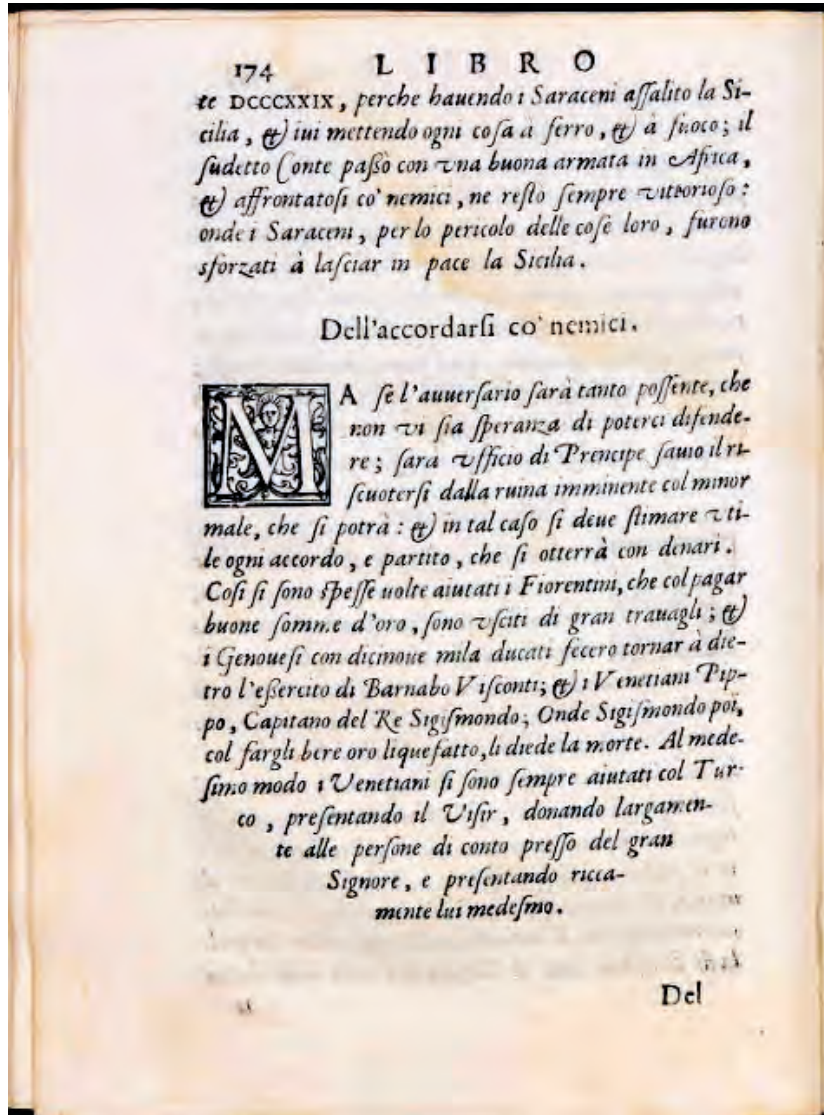 174 LIBRO
te DCCCXXIX, perche hauendo i Saraceni aſſalito la Si-
cilia, & iui mettendo ogni coſa à ferro, & à fuoco; il
ſudetto Conte paßò con vna buona armata in Africa,
& affrontatoſi co' nemici, ne reſto ſempre vittorioſo:
onde i Saraceni, per lo pericolo delle coſe loro, furono
sforzati à laſciar in pace la Sicilia.
Dell'accordarſi co' nemici.
MA ſe l'auuerſario ſarà tanto poſſente, che
non vi ſia ſperanza di poterci difende-
re; ſara vfficio di Prencipe ſauio il ri-
ſcuoterſi dalla ruina imminente col minor
male, che ſi potrà: & in tal caſo ſi deue ſtimare vti-
le ogni accordo, e partito, che ſi otterrà con denari.
Coſi ſi ſono ſpeſſe uolte aiutati i Fiorentini, che col pagar
buone ſomme d'oro, ſono vſciti di gran trauagli; &
i Genoueſi con dicinoue mila ducati fecero tornar à die-
tro l'eßercito di Barnabo Viſconti; & i Venetiani Pip-
po, Capitano del Re Sigiſmondo; Onde Sigiſmondo poi,
col fargli bere oro liquefatto, li diede la morte. Al mede-
ſimo modo i Venetiani ſi ſono ſempre aiutati col Tur-
co, preſentando il Viſir, donando largamen-
te alle perſone di conto preſſo del gran
Signore, e preſentando ricca-
mente lui medeſmo.
Del